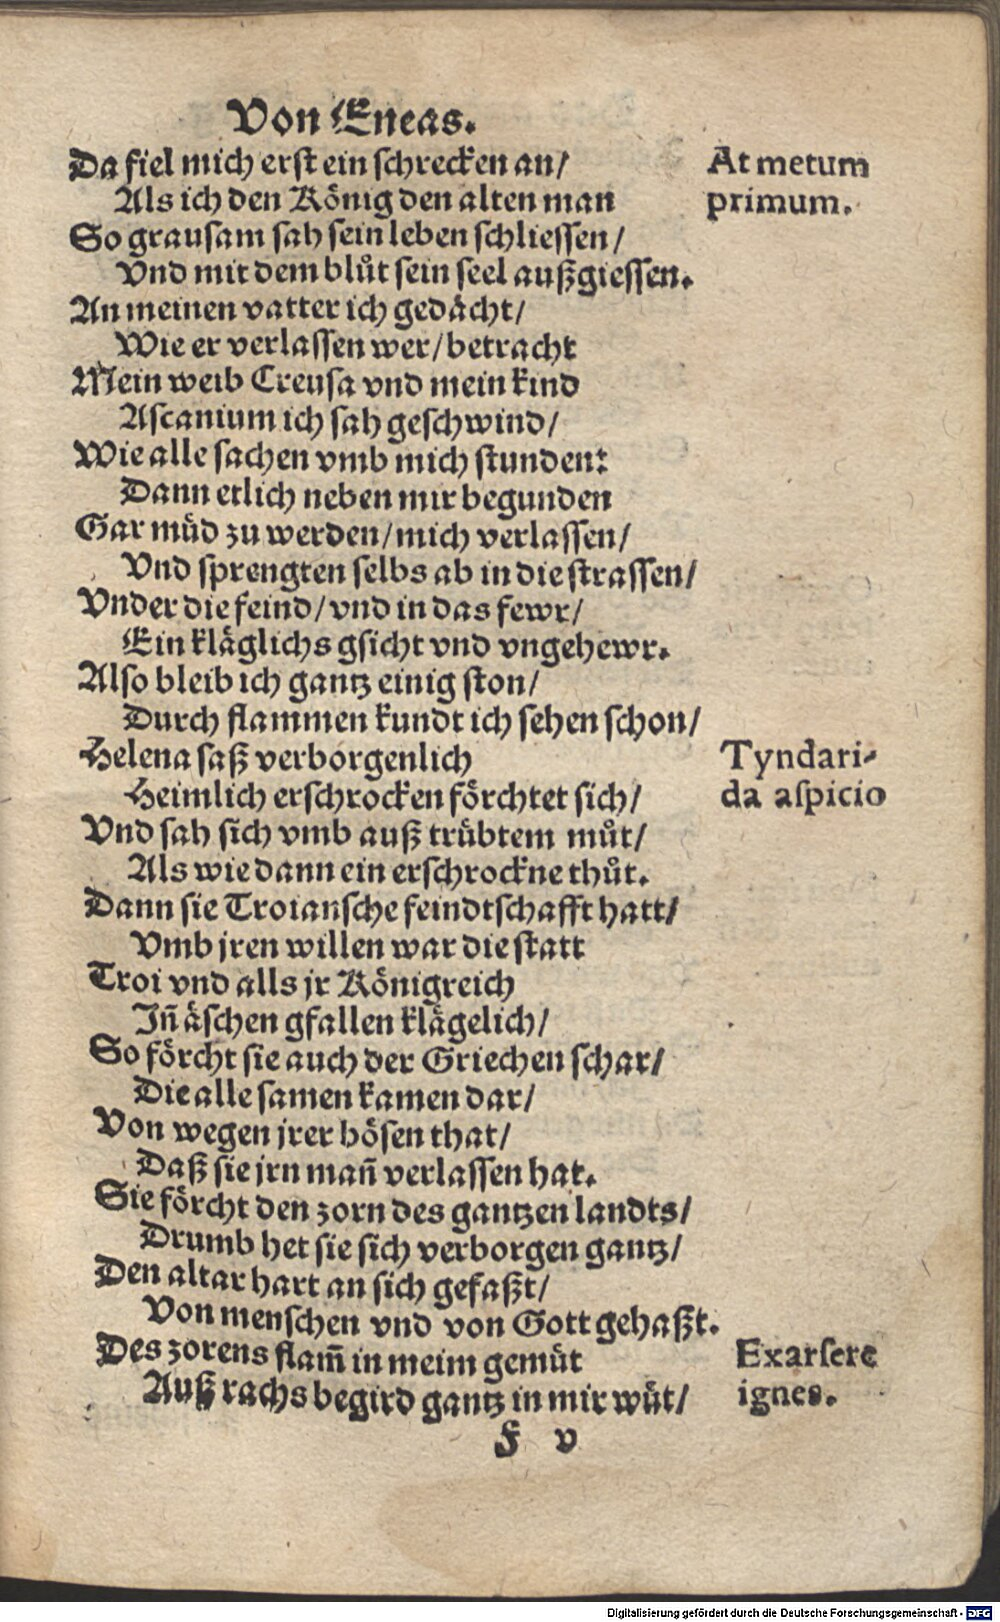 Von Eneas.
Da fiel mich erst ein schrecken an/
Als ich den König den alten man
So grausam sah sein leben schliessen/
Vnd mit dem blůt sein seel außgiessen.
An meinen vatter ich gedächt/
Wie er verlassen wer/ betracht
Mein weib Creusa vnd mein kind
Ascanium ich sah geschwind/
Wie alle sachen vmb mich stunden:
Dann etlich neben mir begunden
Gar müd zu werden/ mich verlassen/
Vnd sprengten selbs ab in die strassen/
Vnder die feind/ vnd in das fewr/
Ein kläglichs gsicht vnd vngehewr.
Also bleib ich gantz einig ston/
Durch flammen kundt ich sehen schon/
Helena saß verborgenlich
Heimlich erschrocken förchtet sich/
Vnd sah sich vmb auß trübtem můt/
Als wie dann ein erschrockne thůt.
Dann sie Troiansche feindtschafft hatt/
Vmb jren willen war die statt
Troi vnd alls jr Königreich
Jn̄ äschen gfallen klägelich/
So förcht sie auch der Griechen schar/
Die alle samen kamen dar/
Von wegen jrer bösen that/
Daß sie jrn man̄ verlassen hat.
Sie förcht den zorn des gantzen landts/
Drumb het sie sich verborgen gantz/
Den altar hart an sich gefaßt/
Von menschen vnd von Gott gehaßt.
Des zorens flam̄ in meim gemüt
Auß rachs begird gantz in mir wüt/
F v
At metum
primum.
Tyndari-
da aspicio
Exarsere
ignes.
Digitalisierung gefördert durch die Deutsche Forschungsgemeinschaft - DFG